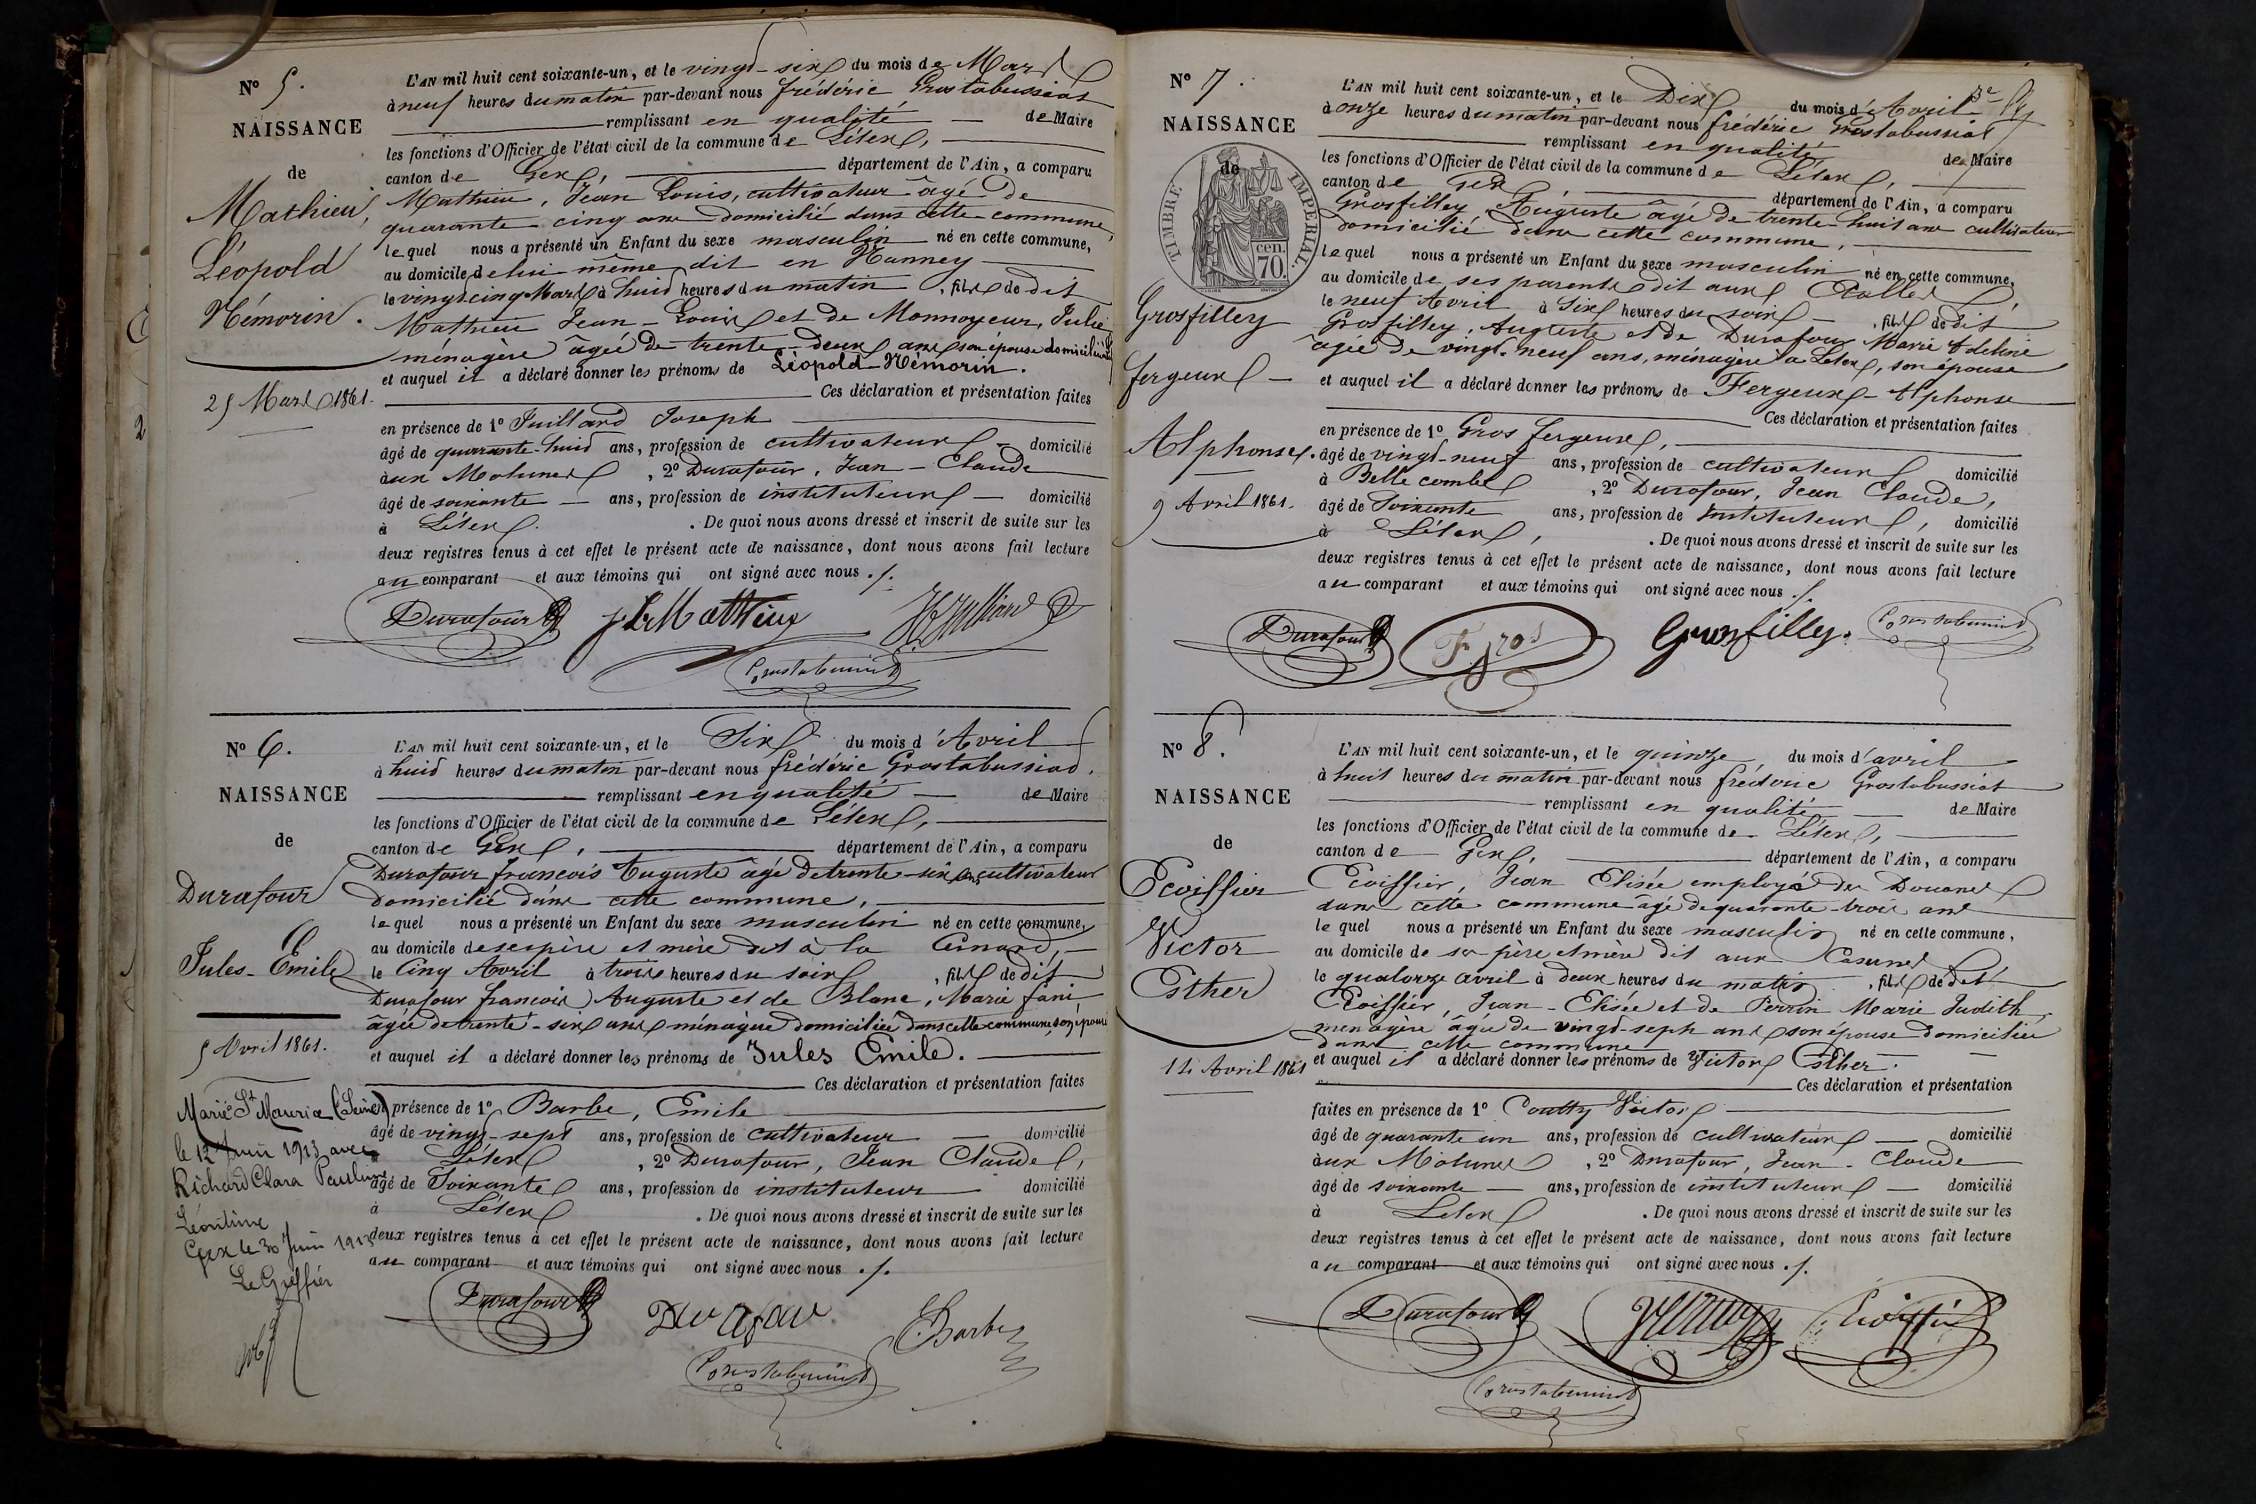 N° 5.
NAISSANCE
de
Mathieu,
Léopold
Némorin.
25 Mars 1861.
L'AN mil huit cent soixante-un, et le vingt-six du mois de Mars
à neuf heures du matin par-devant nous frédéric Grostabussiat
remplissant en qualité de Maire
les fonctions d'Officier de l'état civil de la commune de Lélex,
canton de Gex, département de l'Ain, a comparu
Mathieu, Jean Louis, cultivateur âgé de
quarante cinq ans domicilié dans cette commune,
lequel nous a présenté un Enfant du sexe masculin né en cette commune,
au domicile de lui même dit en Hanney
le vingt cinq Mars à huit heures du matin, fils de dit
Mathieu Jean-Louis et de Monnoyeur, Julie
ménagère âgée de trente-deux ans son épouse domiciliée
et auquel il a déclaré donner les prénoms de Léopold-Némorin.
Ces déclaration et présentation faites
en présence de 1° Juilland Joseph
âgé de quarante-huit ans, profession de cultivateur domicilié
aux Molunes, 2° Durafour, Jean-Claude
âgé de soixante ans, profession de instituteur domicilié
à Lélex. De quoi nous avons dressé et inscrit de suite sur les
deux registres tenus à cet effet le présent acte de naissance, dont nous avons fait lecture
au comparant et aux témoins qui ont signé avec nous ./.
Durafour JL Mathieu
Grostabussiat
N° 6.
NAISSANCE
de
Durafour
Jules-Emile
5 Avril 1861.
Marié St Maurice (Seine)
le 12 Juin 1913 avec
Richard Clara Pauline
Léontine
Gex le 30 Juin 1913
Le Greffier
L'AN mil huit cent soixante-un, et le Six du mois d'Avril
à huit heures du matin par-devant nous frédéric Grostabussiat,
remplissant en qualité de Maire
les fonctions d'Officier de l'état civil de la commune de Lélex,
canton de Gex, département de l'Ain, a comparu
Durafour françois Auguste âgé de trente-six ans cultivateur
domicilié dans cette commune,
lequel nous a présenté un Enfant du sexe masculin né en cette commune,
au domicile de ses père et mère dit à la
le Cinq Avril à trois heures du soir, fils de dit
Durafour françois Auguste et de Blanc, Marie fani
âgée de trente-six ans ménagère domiciliée dans cette commune, son épouse
et auquel il a déclaré donner les prénoms de Jules Emile.
Ces déclaration et présentation faites
présence de 1° Barbe, Emile
âgé de vingt-sept ans, profession de cultivateur domicilié
à Lélex, 2° Durafour, Jean Claude,
âgé de Soixante ans, profession de instituteur domicilié
à Lélex. De quoi nous avons dressé et inscrit de suite sur les
deux registres tenus à cet effet le présent acte de naissance, dont nous avons fait lecture
au comparant et aux témoins qui ont signé avec nous ./.
Durafour Durafour Barbe
Grostabussiat
N° 7.
NAISSANCE
de
TIMBRE IMPERIAL.
cen.
70.
Grosfilley
fergeux
Alphonse.
9 Avril 1861.
L'AN mil huit cent soixante-un, et le Dix du mois d'Avril
à onze heures du matin par-devant nous frédéric Grostabussiat
remplissant en qualité de Maire
les fonctions d'Officier de l'état civil de la commune de Lélex,
canton de Gex, département de l'Ain, a comparu
Grosfilley, Auguste âgé de trente-huit ans cultivateur
domicilié dans cette commune,
lequel nous a présenté un Enfant du sexe masculin né en cette commune,
au domicile de ses parents dit aux
le neuf Avril à Six heures du soir, fils de dit
Grosfilley, Auguste et de Durafour Marie Adeline
âgée de vingt-neuf ans, ménagère à Lélex, son épouse
et auquel il a déclaré donner les prénoms de Fergeux-Alphonse
Ces déclaration et présentation faites
en présence de 1° Gros fergeux,
âgé de vingt-neuf ans, profession de cultivateur domicilié
à Belle combe, 2° Durafour, Jean Claude,
âgé de Soixante ans, profession de Instituteur, domicilié
à Lélex, . De quoi nous avons dressé et inscrit de suite sur les
deux registres tenus à cet effet le présent acte de naissance, dont nous avons fait lecture
au comparant et aux témoins qui ont signé avec nous ./.
Durafour F. gros Grosfilley. Grostabussiat
N° 8.
NAISSANCE
de
Ecoiffier
Victor
Esther
14 Avril 1861
L'AN mil huit cent soixante-un, et le quinze du mois d'avril
à huit heures du matin par-devant nous frédéric Grostabussiat
remplissant en qualité de Maire
les fonctions d'Officier de l'état civil de la commune de Lélex,
canton de Gex, département de l'Ain, a comparu
Ecoiffier, Jean Elisée employé des Douanes
dans cette commune âgé de quarante-trois ans
lequel nous a présenté un Enfant du sexe masculin né en cette commune,
au domicile de ses père et mère dit aux
le quatorze avril à deux heures du matin, fils de dit
Ecoiffier, Jean-Elisée et de Perrin Marie Judith,
ménagère âgée de vingt-sept ans son épouse domiciliée
dans cette commune
et auquel il a déclaré donner les prénoms de Victor Esther.
Ces déclaration et présentation
faites en présence de 1° Coutty Victor
âgé de quarante un ans, profession de cultivateur domicilié
aux Molunes, 2° Durafour, Jean-Claude
âgé de soixante ans, profession de instituteur domicilié
à Lélex. De quoi nous avons dressé et inscrit de suite sur les
deux registres tenus à cet effet le présent acte de naissance, dont nous avons fait lecture
au comparant et aux témoins qui ont signé avec nous ./.
Durafour Ecoiffier
Grostabussiat